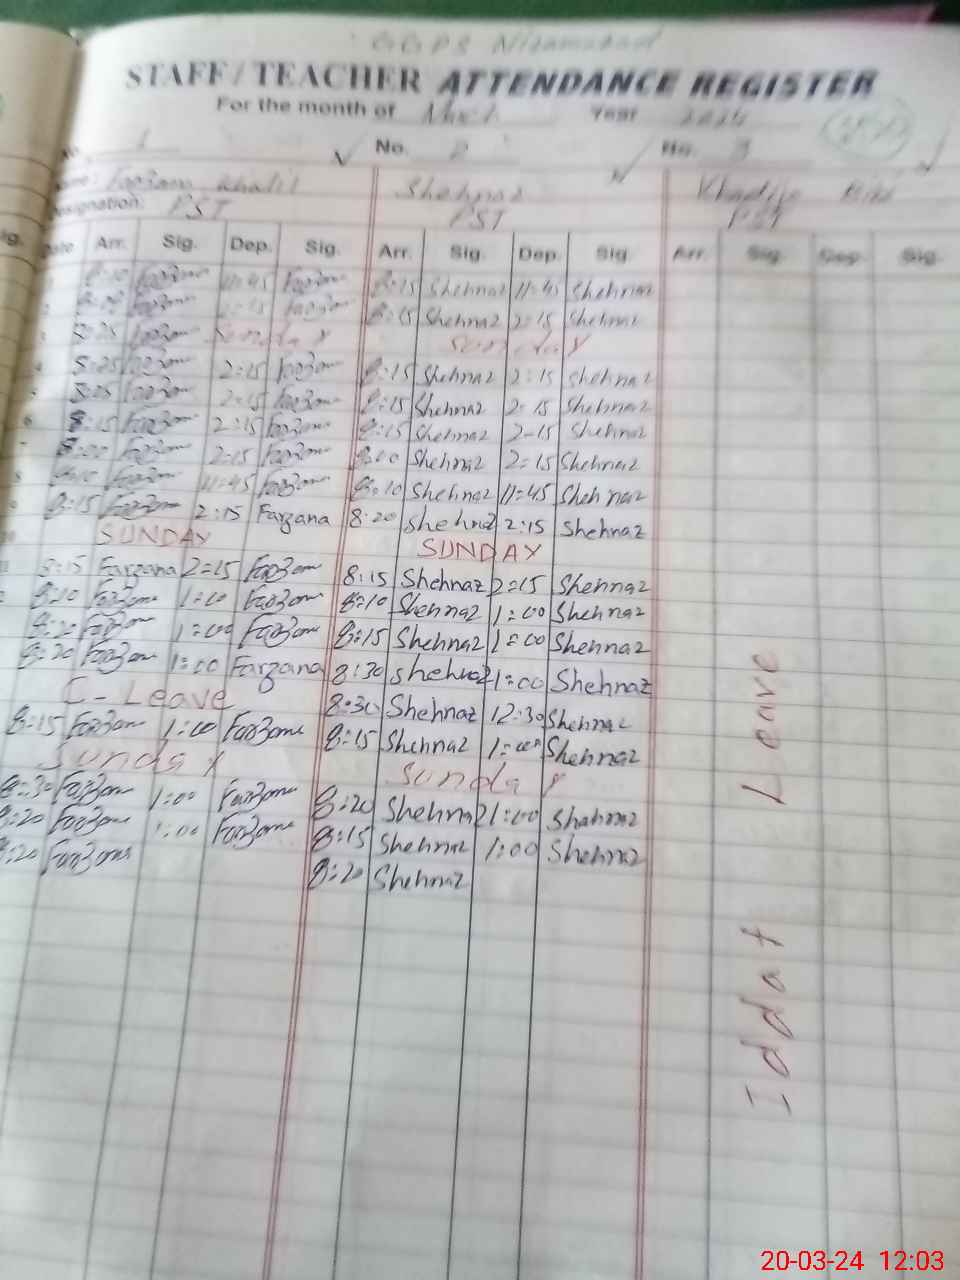 GGPS Nizamabad
STAFF / TEACHER ATTENDANCE REGISTER
For the month of March Year 2024
1 No. 2 No. 3
Name: Farzana Khalil Shehnaz Khadija Bibi
Designation: PST PST PST
Date Arr. Sig. Dep. Sig. Arr. Sig. Dep. Sig. Arr. Sig. Dep. Sig.
8:10 Farzana 11:45 Farzana 8:15 Shehnaz 11:45 Shehnaz
Farzana 2:15 Farzana 8:15 Shehnaz 2:15 Shehnaz
8:25 Farzana Sunday Sunday
8:25 Farzana 2:15 Farzana 8:15 Shehnaz 2:15 Shehnaz
8:25 Farzana 2:15 Farzana 8:15 Shehnaz 2:15 Shehnaz
8:15 Farzana 2:15 Farzana 8:15 Shehnaz 2-15 Shehnaz
8:00 Farzana 2:15 Farzana 8:00 Shehnaz 2:15 Shehnaz
8:10 Farzana 11:45 Farzana 8:10 Shehnaz 11:45 Shehnaz
8:15 Farzana 2:15 Farzana 8:20 Shehnaz 2:15 Shehnaz
SUNDAY SUNDAY
8:15 Farzana 2=15 Farzana 8:15 Shehnaz 2=15 Shehnaz
8:10 Farzana 1:00 Farzana 8:10 Shehnaz 1:00 Shehnaz
8:20 Farzana 1:00 Farzana 8:15 Shehnaz 1:00 Shehnaz
8:30 Farzana 1:00 Farzana 8:30 Shehnaz 1:00 Shehnaz
C-Leave 8:30 Shehnaz 12:30 Shehnaz
8:15 Farzana 1:00 Farzana 8:15 Shehnaz 1:00 Shehnaz
Sunday Sunday
8:30 Farzana 1:00 Farzana 8:20 Shehnaz 1:00 Shehnaz
8:20 Farzana 1:00 Farzana 8:15 Shehnaz 1:00 Shehnaz
:20 Farzana 8:20 Shehnaz
Iddat Leave
20-03-24 12:03